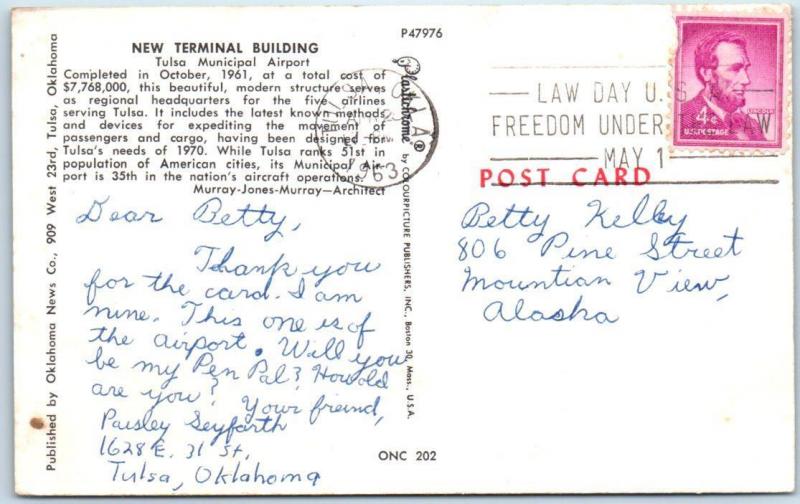 P47976
NEW TERMINAL BUILDING
Tulsa Municipal Airport
Completed in October, 1961, at a total cost of
$7,768,000, this beautiful, modern structure serves
as regional headquarters for the five airlines
serving Tulsa. It includes the latest known methods
and devices for expediting the movement of
passengers and cargo, having been designed for
Tulsa's needs of 1970. While Tulsa ranks 51st in
population of American cities, its Municipal Air-
port is 35th in the nation's aircraft operations.
Murray-Jones-Murray—Architect
Published by Oklahoma News Co., 909 West 23rd, Tulsa, Oklahoma
Plastichrome® by COLOURPICTURE PUBLISHERS, INC., Boston 30, Mass., U.S.A.
Dear Betty,
Thank you
for the card. I am
nine. This one is of
the airport. Will you
be my Pen Pal? How old
are you? Your freind,
Paisley Seyfarth
1628 E. 31 St.
Tulsa, Oklahoma
ONC 202
1963
LAW DAY U.S
FREEDOM UNDER LAW
MAY 1
LINCOLN
4¢
U.S. POSTAGE
POST CARD
Betty Kelly
806 Pine Street
Mountian View,
Alaska